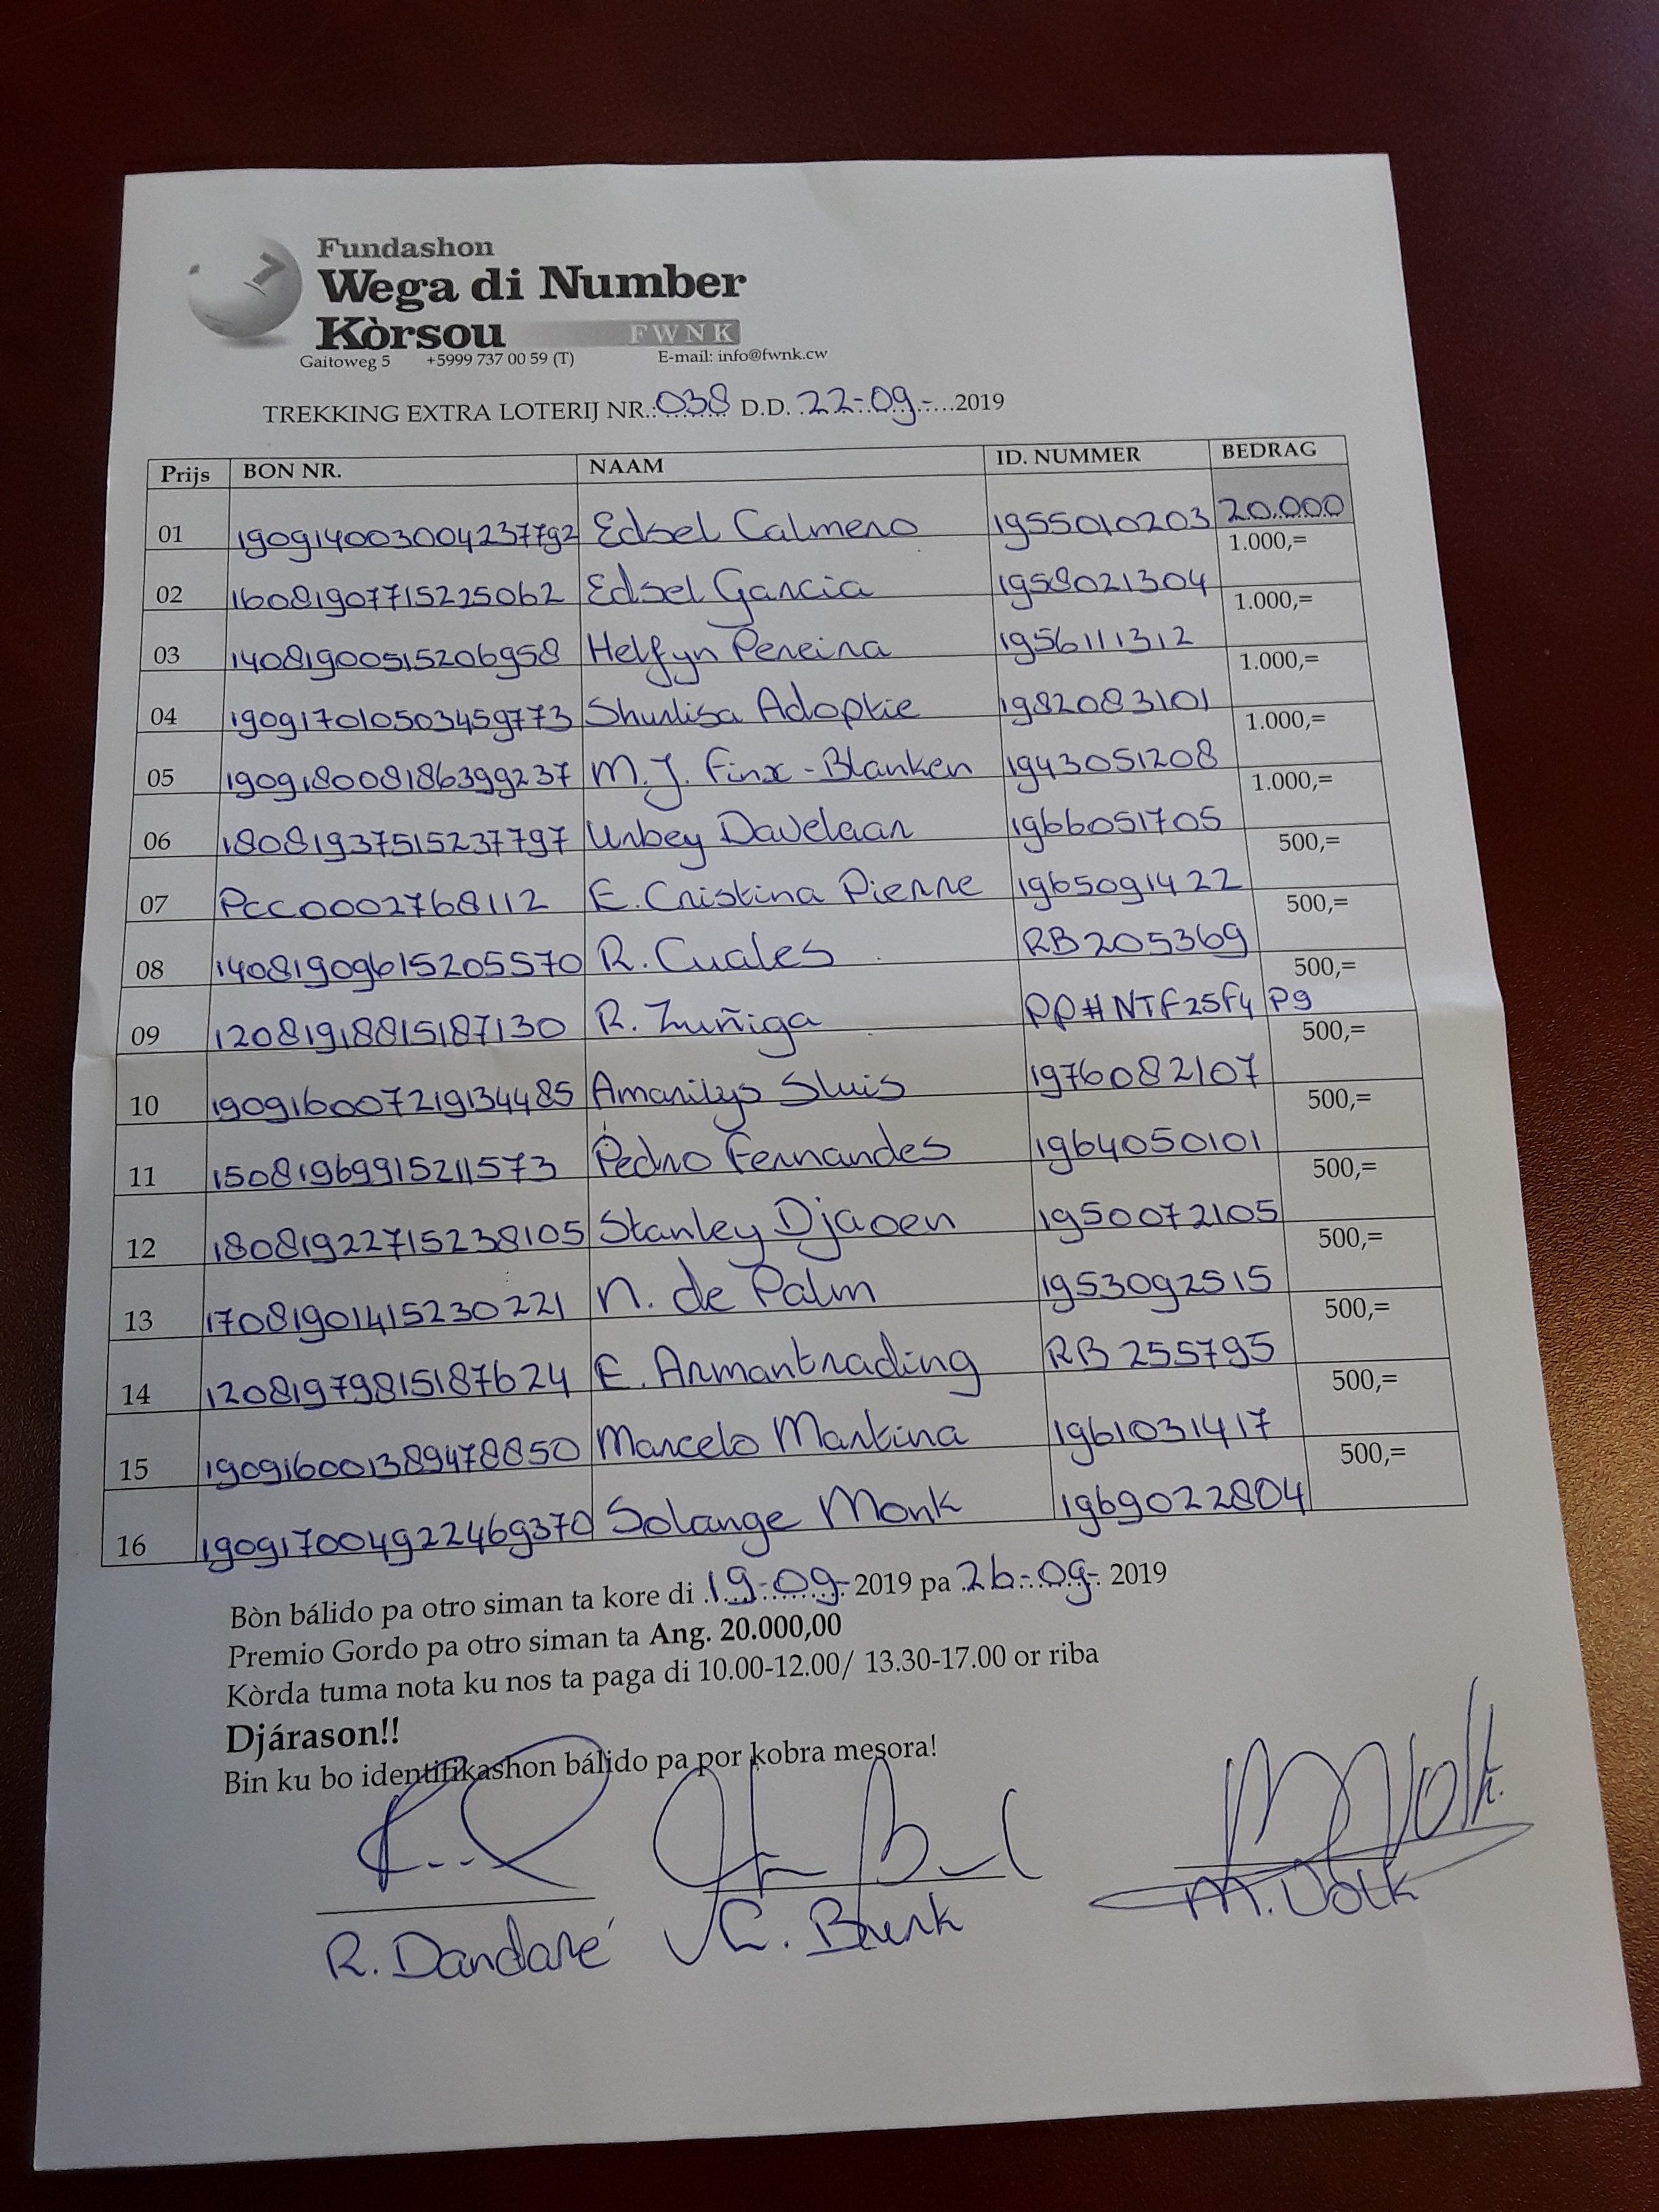 Fundashon
Wega di Number
Kòrsou FWNK
Gaitoweg 5 +5999 737 00 59 (T) E-mail: info@fwnk.cw
TREKKING EXTRA LOTERIJ NR.: 038 D.D. 22-09-2019
Prijs BON NR. NAAM ID. NUMMER BEDRAG
01 190914003004237792 Edsel Calmero 1955010203 20.000
02 16081907715225062 Edsel Garcia 1958021304 1.000,=
03 14081900515206958 Helfyn Pereira 1956111312 1.000,=
04 1909170105034597​73 Shurlisa Adoptie 1982083101 1.000,=
05 1909180081863992​37 M.J. Finx-Blanken 1943051208 1.000,=
06 18081937515237797 Urbey Davelaar 1966051705 1.000,=
07 PCC0002768112 E. Cristina Pierre 1965091422 500,=
08 14081909615205570 R. Cuales RB205369 500,=
09 12081918815187130 R. Zuñiga PP#NTF25F4P9 500,=
10 1909160072191344​85 Amarilys Sluis 1976082107 500,=
11 15081969915211573 Pedro Fernandes 1964050101 500,=
12 18081922715238105 Stanley Djaoen 1950072105 500,=
13 17081901415230221 N. de Palm 1953092515 500,=
14 12081979815187624 E. Armantrading RB 255795 500,=
15 1909160013894788​50 Marcelo Martina 1961031417 500,=
16 1909170049224693​70 Solange Monk 1969022804 500,=
Bòn bálido pa otro siman ta kore di 19-09-2019 pa 26-09-2019
Premio Gordo pa otro siman ta Ang. 20.000,00
Kòrda tuma nota ku nos ta paga di 10.00-12.00/ 13.30-17.00 or riba
Djárason!!
Bin ku bo identifikashon bálido pa por kobra mesora!
R. Dandaré C. Burk M. Volk